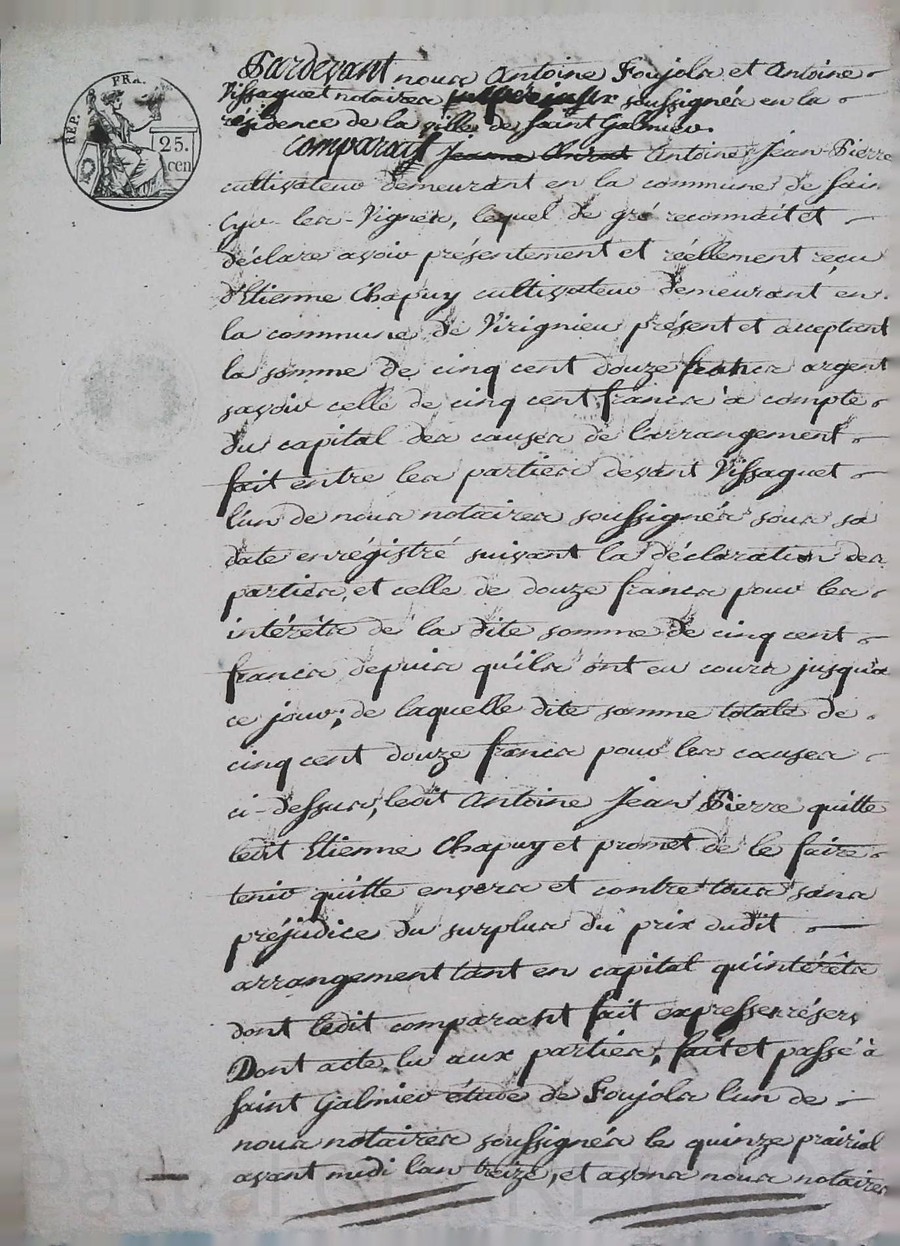 RÉP. FRA.
25.
cen
Pardevant nous Antoine Foujols et Antoine
Vissaguet notaires soussignés en la
résidence de la ville de Saint Galmier.
Comparait Antoine Jean-Pierre
cultivateur demeurant en la commune de Sain
Cyr les-Vignes, lequel de gré reconnait et
déclare avoir présentement et réellement reçu
d'Etienne Chapuy cultivateur demeurant en
la commune de Virignieu présent et acceptant
la somme de cinq cent douze francs argent
savoir celle de cinq cent francs à compte
du capital des causes de l'arrangement
fait entre les parties devant Vissaguet
l'un de nous notaires soussignés sous sa
date enrégistré suivant la déclaration des
parties, et celle de douze francs pour les
intérêts de la dite somme de cinq cent
francs depuis qu'ils ont eu cours jusqu'à
ce jour; de laquelle dite somme totale de
cinq cent douze francs pour les causes
ci-dessus, ledit Antoine Jean Pierre quitte
ledit Etienne Chapuy et promet de le faire
tenir quitte envers et contre tous sans
préjudice du surplus du prix dudit
arrangement tant en capital qu'intérêts
dont ledit comparant fait expresse réserv
Dont acte, lu aux parties, fait et passé à
Saint Galmier étude de Foujols l'un de
nous notaires soussignés le quinze prairial
avant midi l'an treize, et avons nous notaires